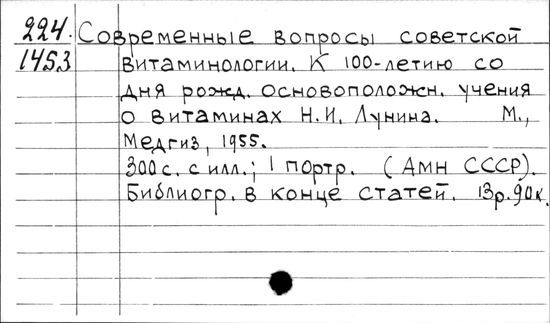 224. Современные вопросы советской
1453 витаминологии. К 100-летию со
дня рожд. основоположн. учения
о витаминах Н.И. Лунина. М.,
Медгиз, 1955.
300 с. с илл.; 1 портр. (АМН СССР).
Библиогр. в конце статей. 13р.90к.